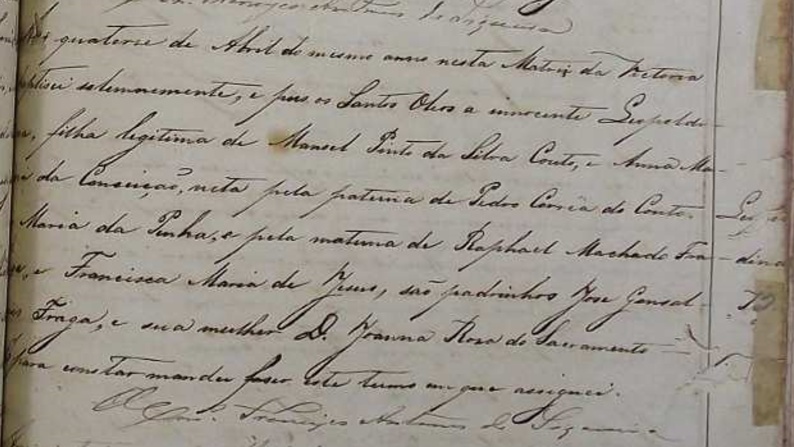 Francisco Antunes de Siqueira
quatorse de Abril do mesmo anno nesta Matriz da Victoria
baptisei solemnemente, e pus os Santos Oleos a innocente Leopoldi-
na, filha legitima de Manoel Pinto da Silva Couto, e Anna Ma-
ria da Conceição, neta pela paterna de Pedro Corrêa do Couto
Maria da Penha, e pela materna de Raphael Machado Fra-
ga, e Francisca Maria de Jesus, são padrinhos Jose Gonsal-
ves Fraga, e sua mulher D. Joanna Rosa do Sacramento
para constar mandei faser este termo em que assignei.
Francisco Antunes de Siqueira
Leopol
dina